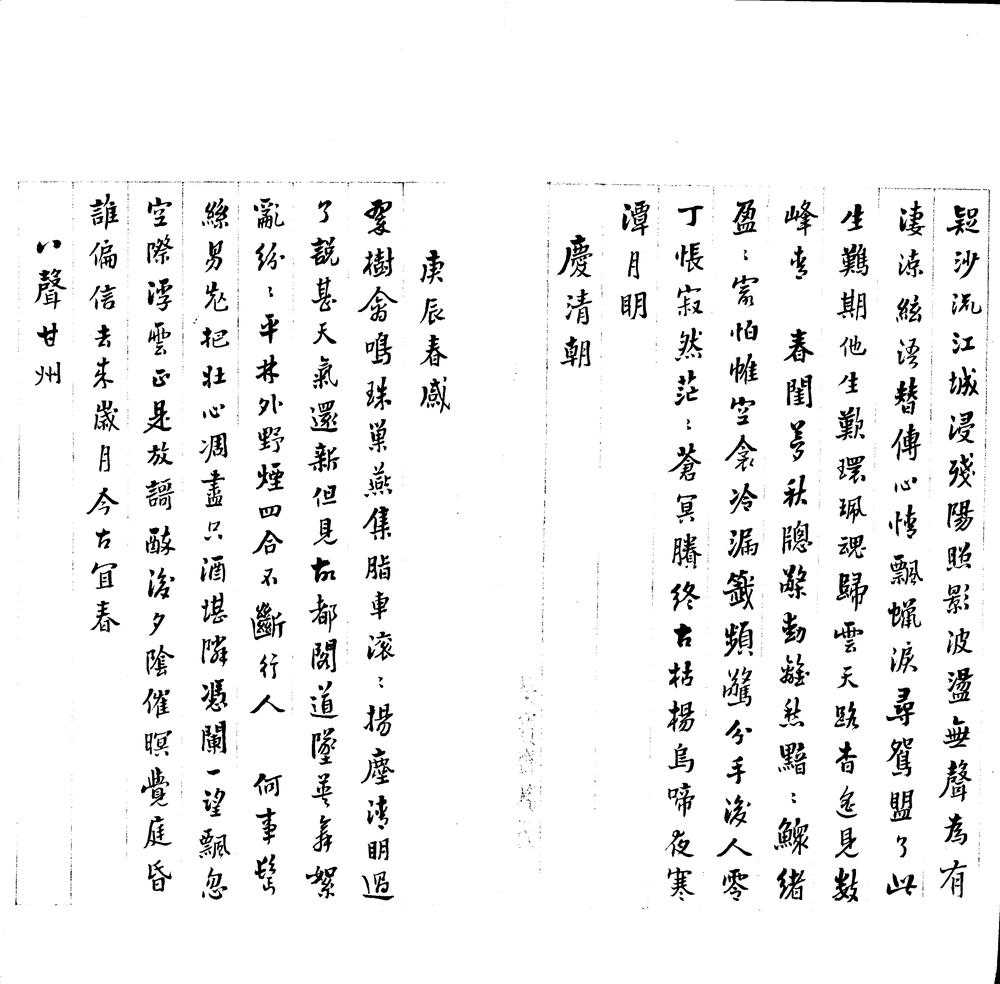 疑沙流江城浸殘陽照影波盪無聲為有
淒涼絃語替傳心情飄蠟淚尋鴛盟了此
生難期他生歎環珮魂歸雲天路杳還見數
峰青　春閨夢秋牕檠動離愁黯〻鰥緒
盈〻窗怕帷空衾冷漏籤頻驚分手後人零
丁悵寂然茫〻蒼冥賸終古枯楊烏啼夜寒
潭月明
慶清朝
庚辰春感
翠樹禽鳴珠巢燕集脂車滚〻揚塵清明過
了說甚天氣還新但見故都閣道墜英舞絮
亂紛〻平林外野煙四合不斷行人　何事鬢
絲易老把壯心凋盡只酒堪隣憑闌一望飄忽
空際浮雲正是放謌酔後夕陰催暝覺庭昏
誰偏信去來歲月今古宜春
八聲甘州